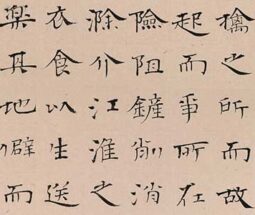 擒之所而故
起而爭所在
險阻鏟削消
滁介江淮之
衣食以生送
樂其地僻而